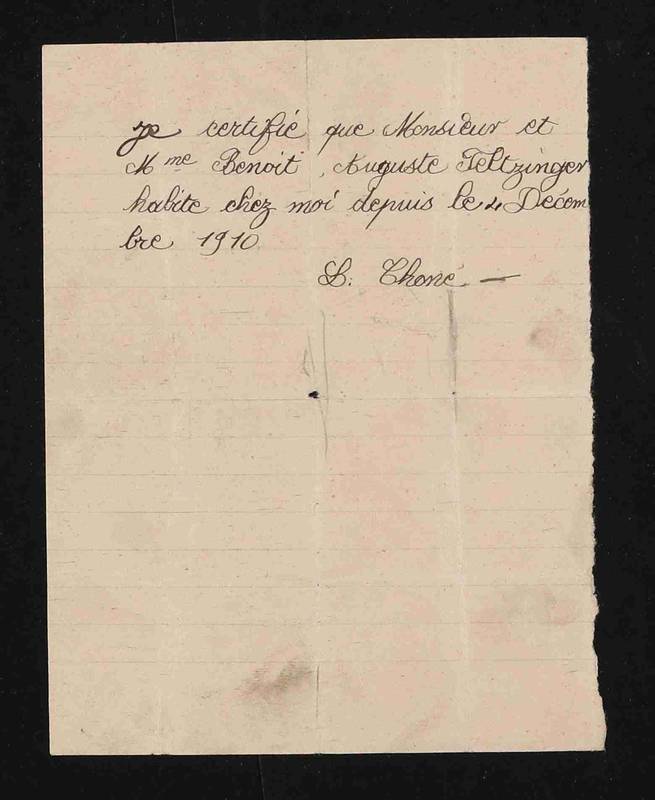 Je certifié que Monsieur et
Mme Benoit, Auguste Feltzinger
habite chez moi depuis le 4 Décem
bre 1910
L. Thoné —